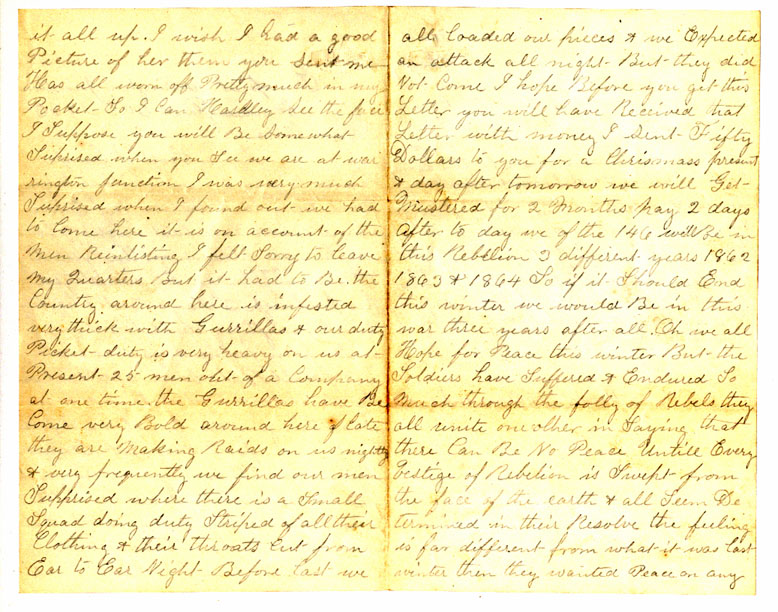 it all up. I wish I had a good
Picture of her them you sent me
Has all worn off Pretty much in my
Pocket So I Can Hardley See the face
I Suppose you will Be Somewhat
Suprised when you See we are at war
rington function I was very much
Suprised when I found out we had
to Come here it is on account of the
Men Reinlisting I felt Sorry to leave
My Quarters But it had to Be. the
Country around here is infested
very thick with Gurrillas & our duty
Picket duty is very heavy on us at
Present 25 men out of a Company
at one time. the Gurrillas have Be
Come very Bold around here of late
they are Making Raids on us nightly
& very frequently we find our men
Suprised where there is a Small
Squad doing duty Striped of all their
Clothing & their throats Cut from
Ear to Ear Night Before last we
all loaded our pieces & we Expected
an attack all night But they did
Not Come I hope Before you get this
Letter you will have Received that
Letter with money I Sent Fifty
Dollars to you for a Chrismass present
& day after tomorrow we will Get
Mustered for 2 Months pay 2 days
after to day we of the 146 will Be in
this Rebelion 3 different years 1862
1863 & 1864 So if it Should End
this winter we would Be in this
war three years after all. Oh we all
Hope for Peace this winter But the
Soldiers have Suffered & Endured So
Much through the folly of Rebels they
all unite one other in Saying that
there Can Be No Peace Untill Every
Vestige of Rebelion is Swept from
the face of the earth & all Seem De
termined in their Resolve the feeling
is far different from what it was last
winter then they wanted Peace on any